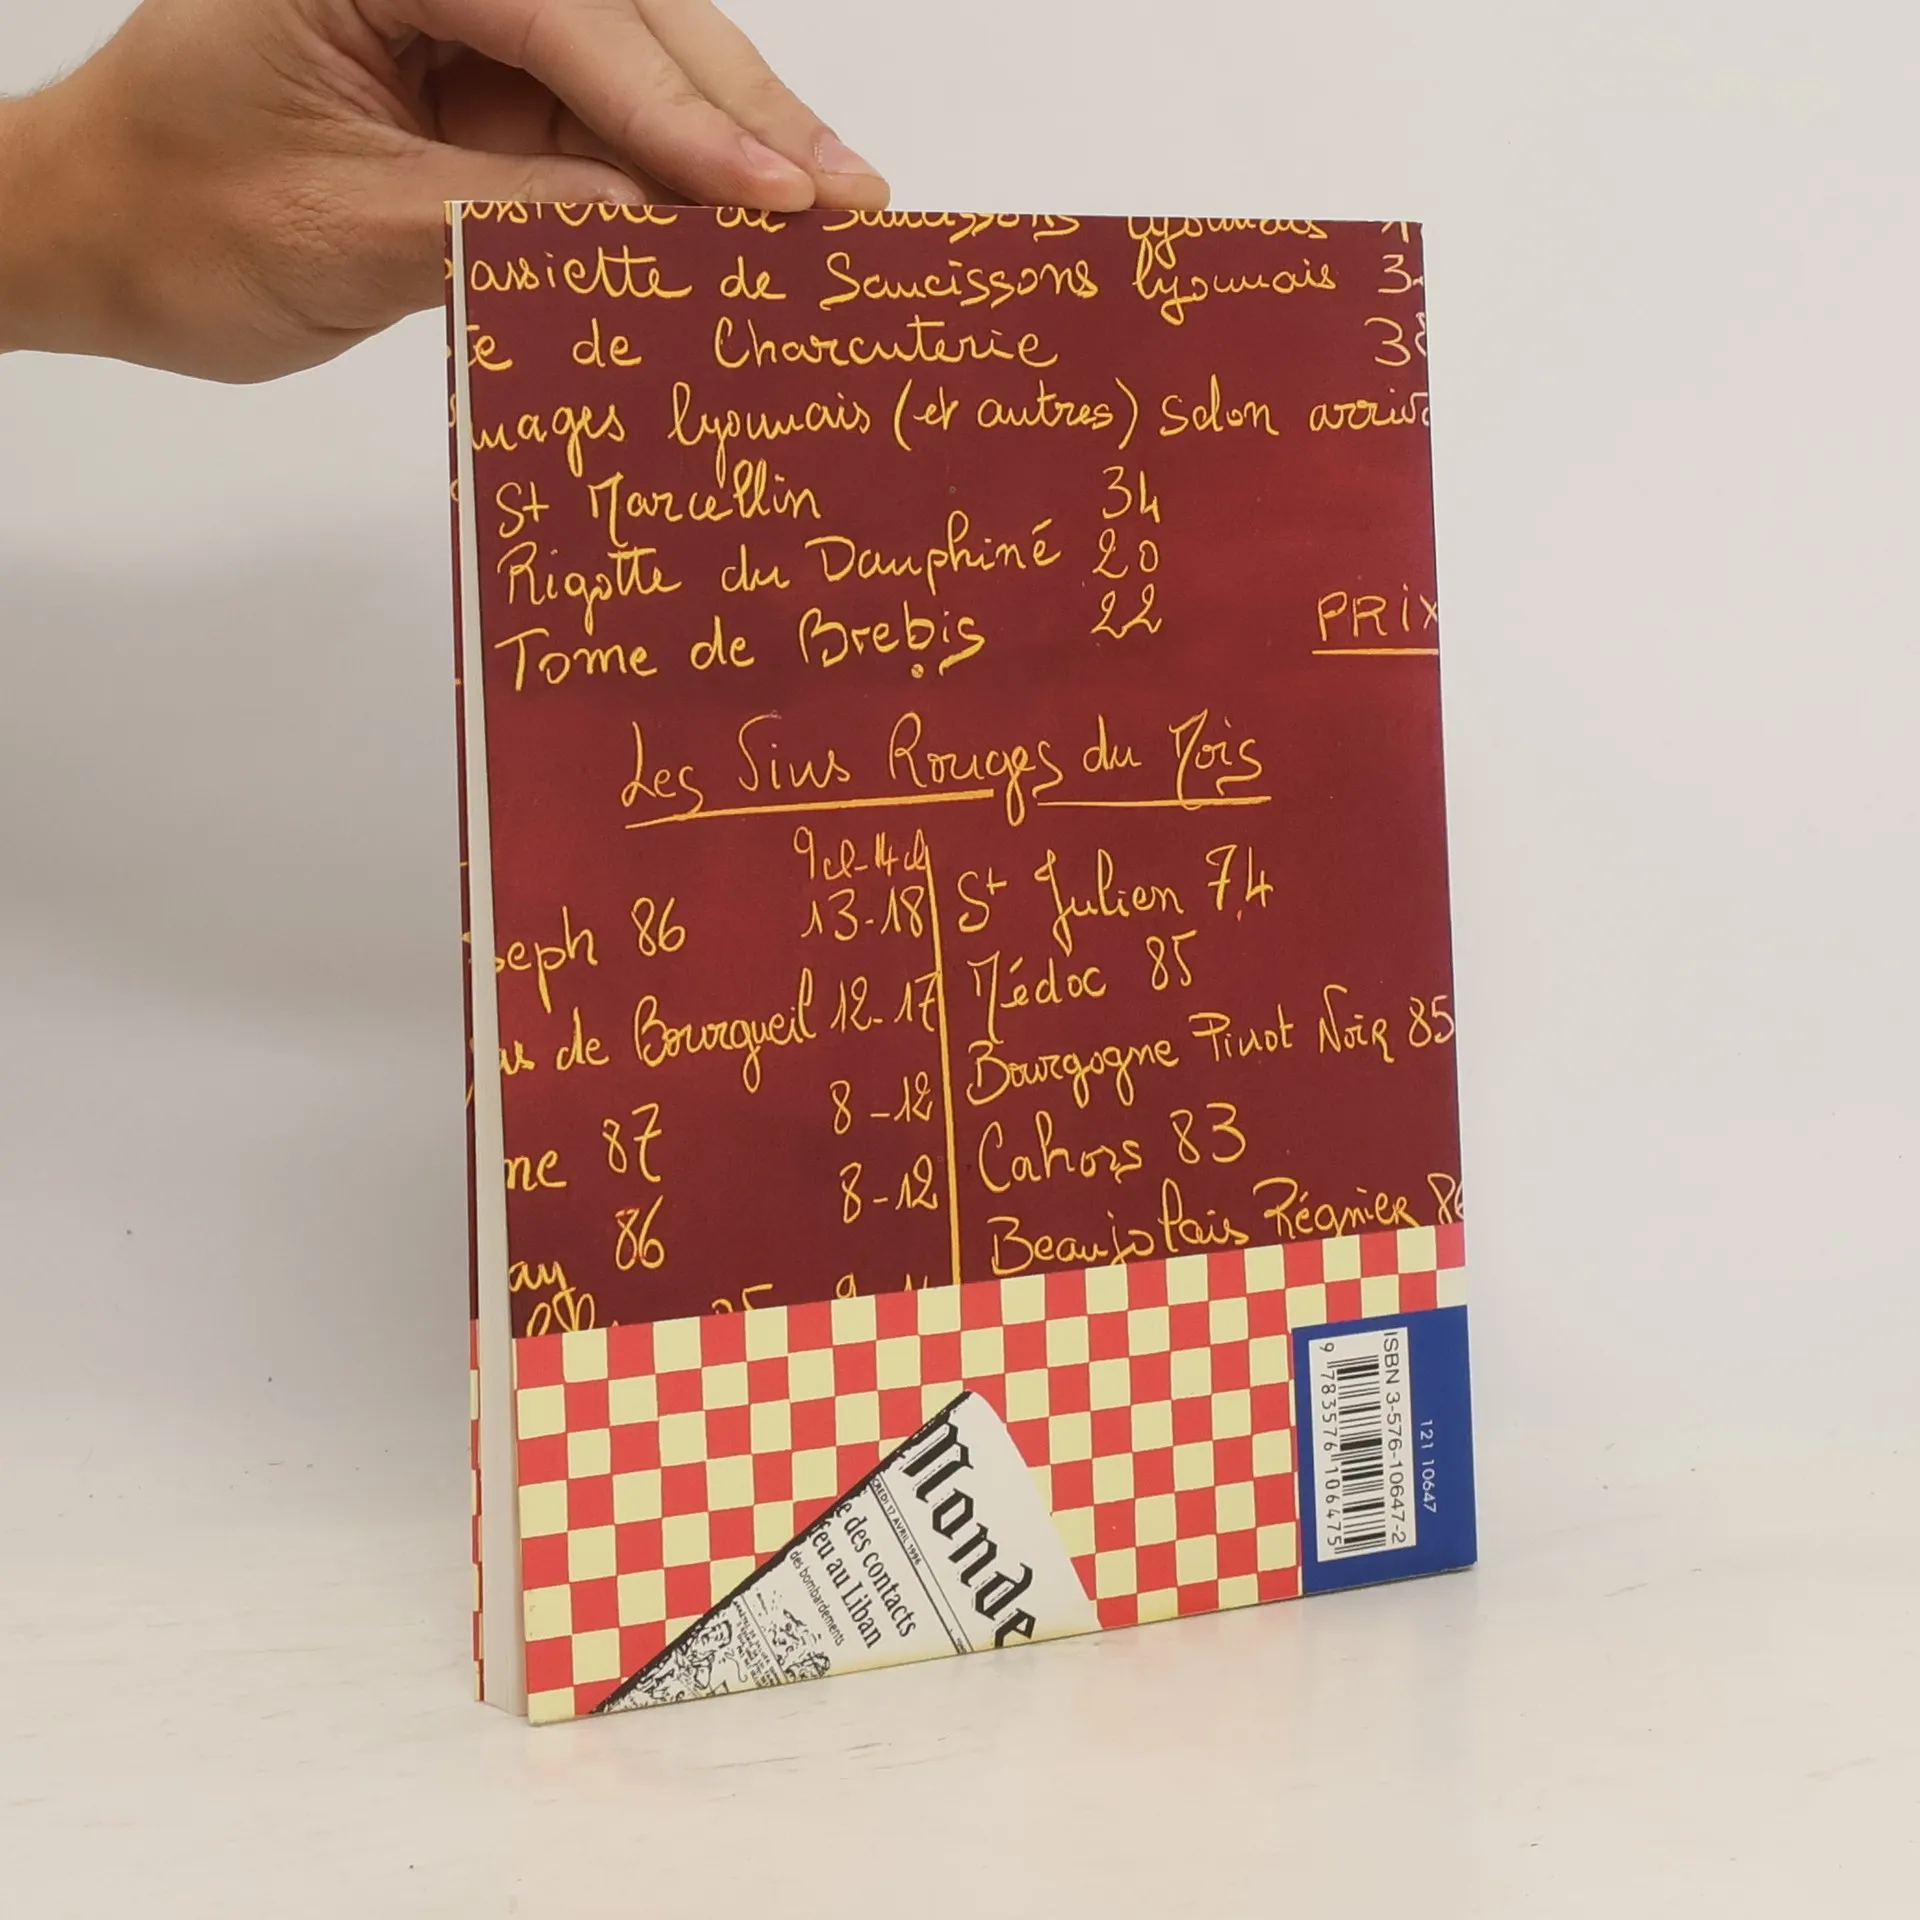 assiette de Saucissons lyonnais
assiette de Saucissons lyonnais 3
te de Charcuterie 38
mages lyonnais (et autres) selon arriva
St Marcellin 34
Rigotte du Dauphiné 20
Tome de Brebis 22
PRIX
Les Vins Rouges du Mois
9cl-14cl
seph 86 13-18
as de Bourgueil 12-17
ne 87 8-12
ay 86 8-12
St Julien 74
Médoc 85
Bourgogne Pinot Noir 85
Cahors 83
Beaujolais Régnier 86
Monde
CREDI 17 AVRIL 1996
e des contacts
feu au Liban
des bombardements
ISBN 3-576-10647-2
9 783576 106475
121 10647